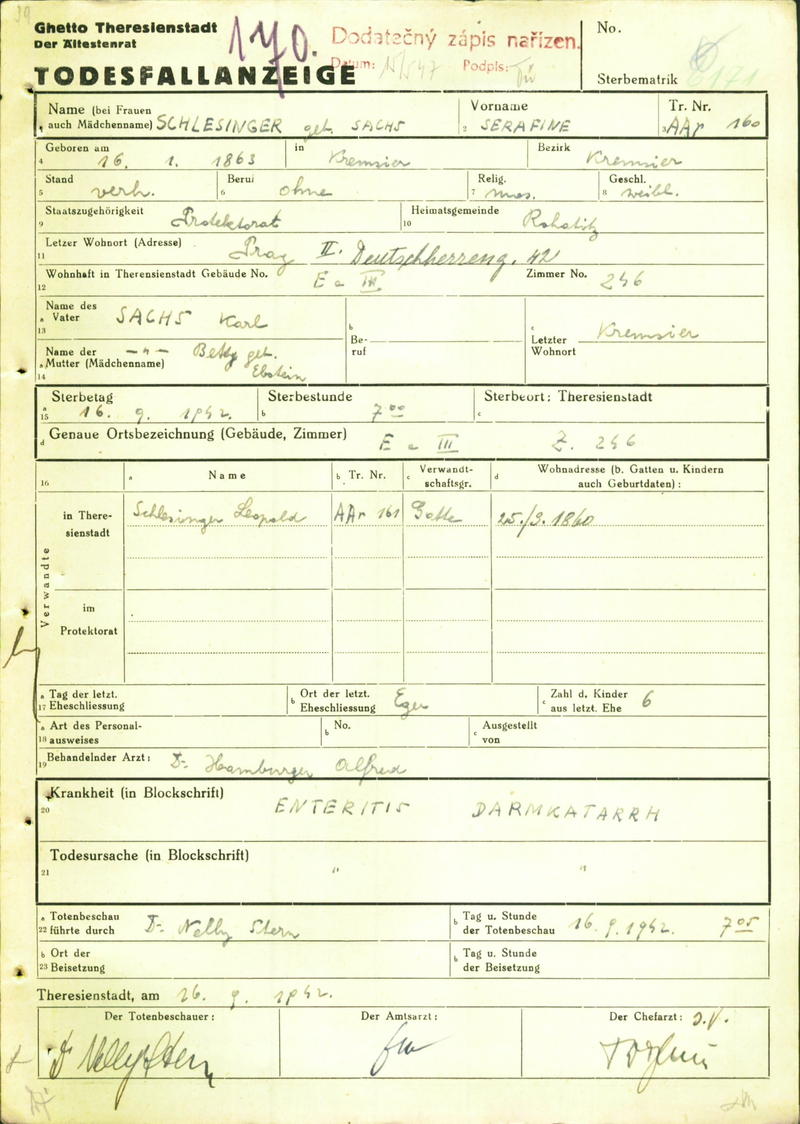 39
Ghetto Theresienstadt
Der Ältestenrat
TODESFALLANZEIGE
170.
Dodatečný zápis nařízen.
Datum: 15/5 47 Podpis:
No.
Sterbematrik 171
Name (bei Frauen auch Mädchenname) SCHLESINGER geb. SACHS
1
Vorname
2 SERAFINE
Tr. Nr.
3 AAr 160
Geboren am
4 16. 1. 1863
in Kremsier
Bezirk Kremsier
Stand
5 verh.
Beruf
6 ohne
Relig.
7 mos.
Geschl.
8 weibl.
Staatszugehörigkeit
9 Protektorat
Heimatsgemeinde
10 Rohatitz
Letzer Wohnort (Adresse)
11 Prag II. Deutschherreng. 42
Wohnhaft in Theresienstadt Gebäude No. E a III. Zimmer No. 246
12
Name des
a Vater SACHS Karl
13
Name der
a Mutter (Mädchenname) — " — Betty geb. Ebstein
14
b
Be-
ruf
c
Letzter
Wohnort Kremsier
Sterbetag
a 15 16. 9. 1942.
Sterbestunde
b 7 00
Sterbeort: Theresienstadt
c
d Genaue Ortsbezeichnung (Gebäude, Zimmer) E a III Z. 246
16 a Name b Tr. Nr. c Verwandt-schaftsgr. d Wohnadresse (b. Gatten u. Kindern auch Geburtdaten):
Verwandte
in There-
sienstadt
Schlesinger Leopold AAr 161 Gatte 25./3. 1860
im
Protektorat
a Tag der letzt.
17 Eheschliessung
b Ort der letzt.
Eheschliessung Eger
c Zahl d. Kinder
aus letzt. Ehe 6
a Art des Personal-
18 ausweises
b No.
c Ausgestellt
von
Behandelnder Arzt: Dr. Hamburger Alfred
19
Krankheit (in Blockschrift)
20 ENTERITIS DARMKATARRH
Todesursache (in Blockschrift)
21 " "
a Totenbeschau
22 führte durch Dr. Nelly Stern
b Tag u. Stunde
der Totenbeschau 16. 9. 1942. 7 05
b Ort der
23 Beisetzung
b Tag u. Stunde
der Beisetzung
Theresienstadt, am 16. 9. 1942.
Der Totenbeschauer:
Dr Nelly Stern
Der Amtsarzt:
Der Chefarzt: I.V.